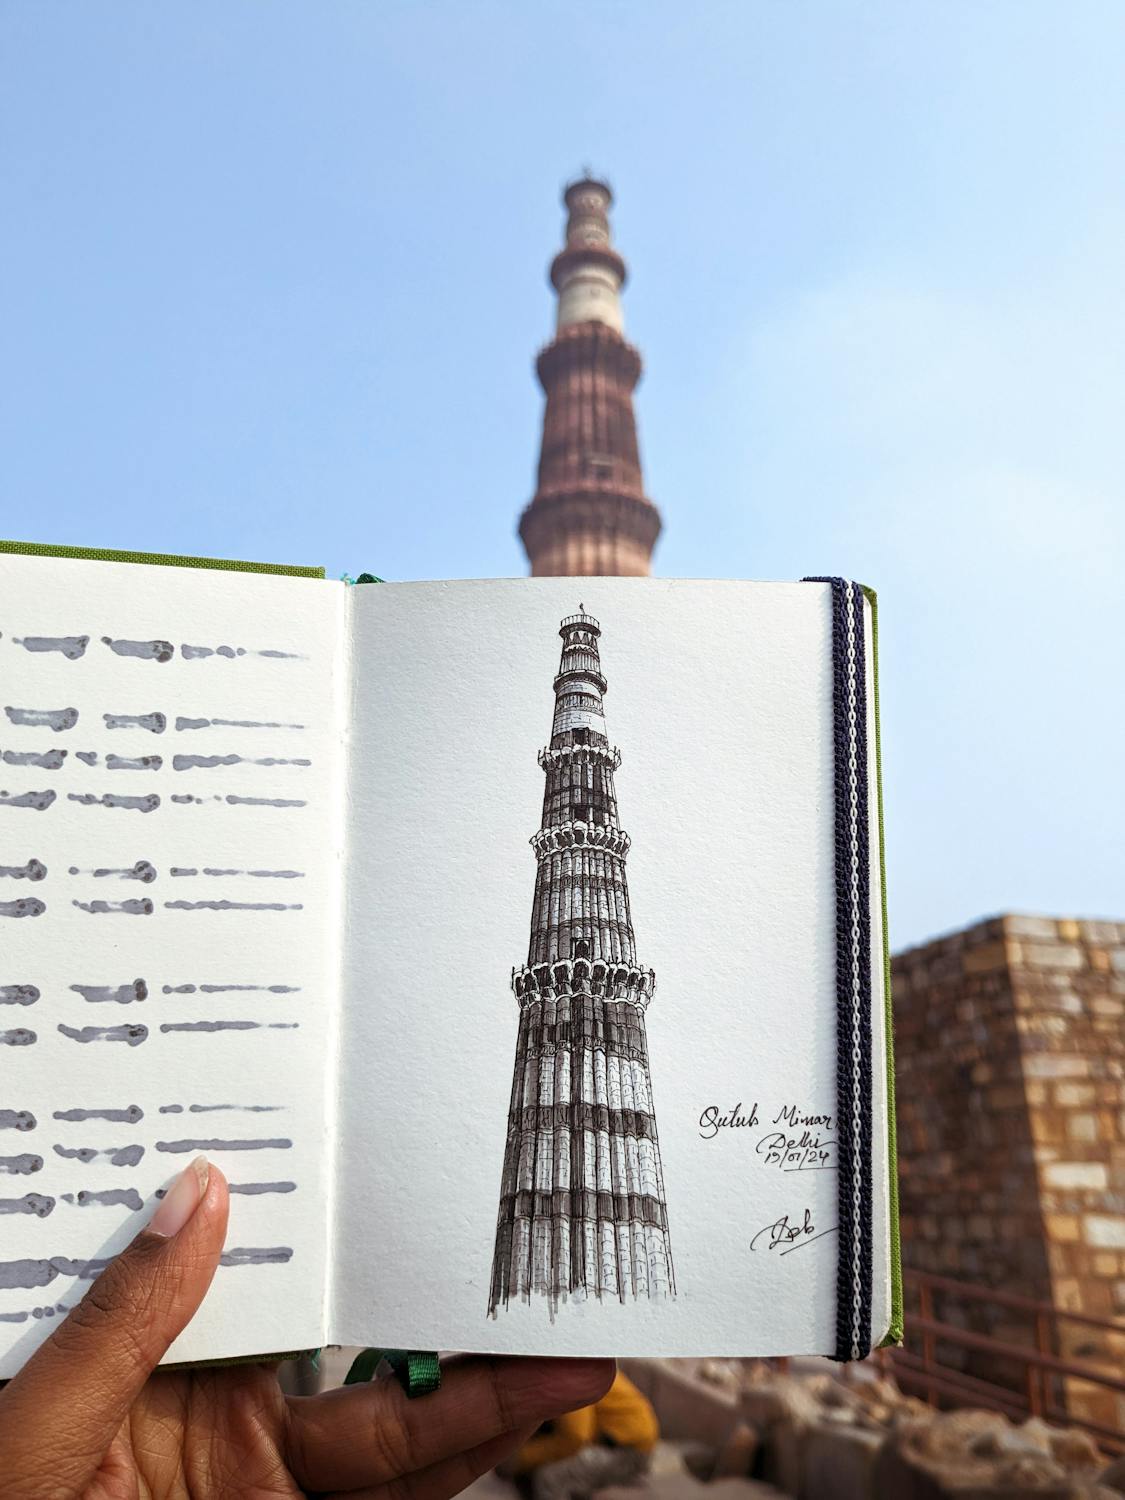 Qutub Minar
Delhi
19/01/24
Deb